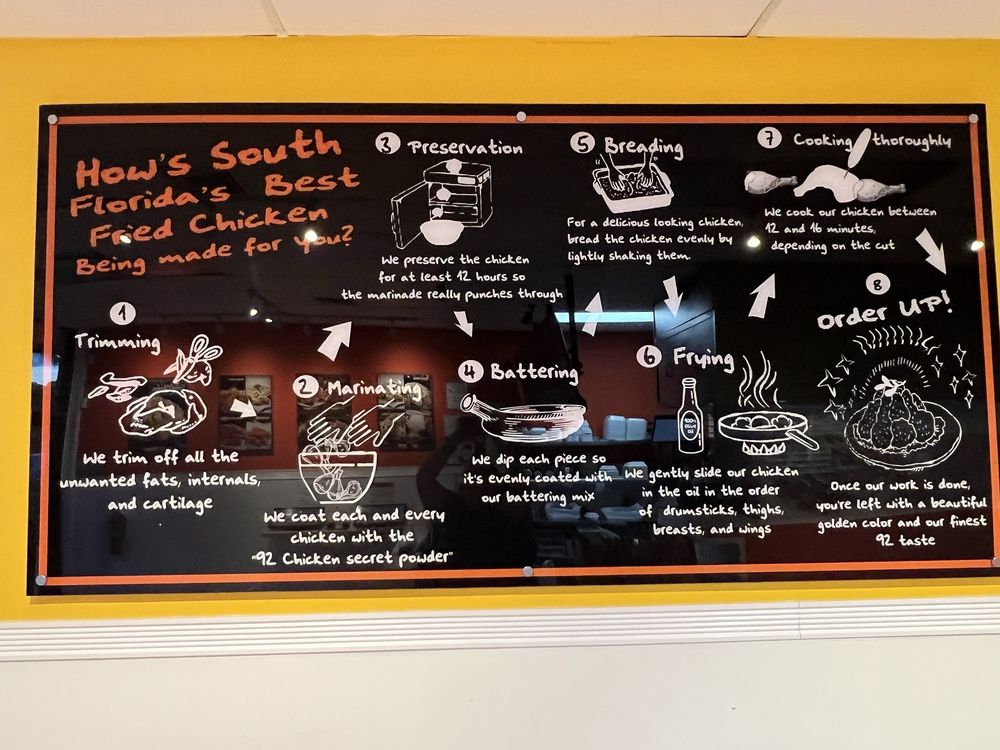 How's South
Florida's Best
Fried Chicken
Being made for you?
1
Trimming
We trim off all the
unwanted fats, internals,
and cartilage
2 Marinating
We coat each and every
chicken with the
"92 Chicken secret powder"
3 Preservation
We preserve the chicken
for at least 12 hours so
the marinade really punches through
4 Battering
We dip each piece so
it's evenly coated with
our battering mix
5 Breading
For a delicious looking chicken,
bread the chicken evenly by
lightly shaking them.
6 Frying
100%
OLIVE
OIL
We gently slide our chicken
in the oil in the order
of drumsticks, thighs,
breasts, and wings
7 Cooking thoroughly
We cook our chicken between
12 and 16 minutes,
depending on the cut
8
Order UP!
Once our work is done,
you're left with a beautiful
golden color and our finest
92 taste